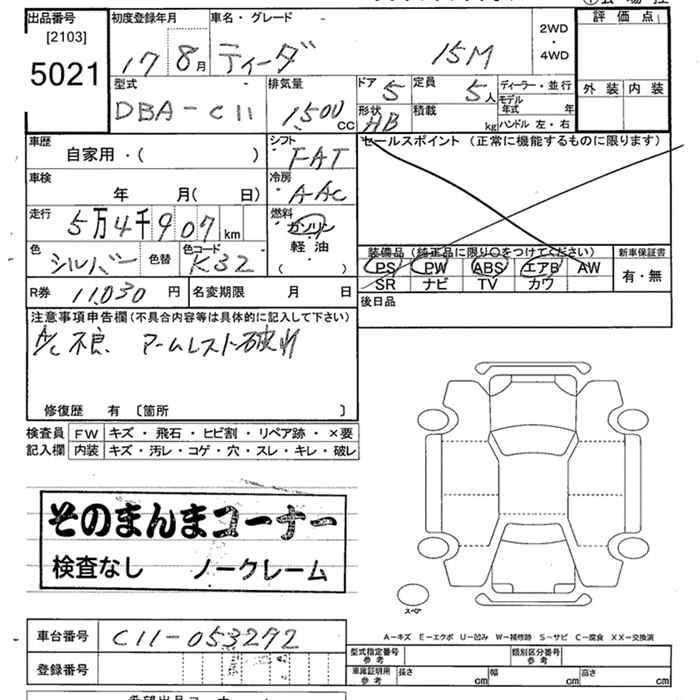 出品番号 [2103] 5021
初度登録年月 17 8月
車名・グレード ティーダ 15M
2WD・4WD
評価点
外装 内装
型式 DBA-C11
排気量 1,500 CC
ドア 5
形状 HB
定員 5人
積載 kg
ディーラー・並行
モデル年式 年
ハンドル 左・右
車歴 自家用・( )
シフト FAT
セールスポイント (正常に機能するものに限ります)
車検 年 月( 日)
冷房 AAC
走行 5万4千907km
燃料 ガソリン 軽油 ( )
色 シルバー 色替
色コード K32
装備品 (純正品に限り○をつけてください)
PS PW ABS エアB AW
SR ナビ TV カワ
新車保証書 有・無
R券 11,030 円
名変期限 月 日
後日品
注意事項申告欄(不具合内容等は具体的に記入して下さい)
A/C不良 アームレスト破れ
修復歴 有 〔箇所 〕
検査員記入欄
FW キズ・飛石・ヒビ割・リペア跡・×要
内装 キズ・汚レ・コゲ・穴・スレ・キレ・破レ
そのまんまコーナー
検査なし ノークレーム
スペア
A-キズ E-エクボ U-凹み W-補修跡 S-サビ C-腐食 XX-交換済
車台番号 C11-053292
登録番号
型式指定番号 参考
類別区分番号 参考
車庫証明用 参考
長さ cm 幅 cm 高さ cm